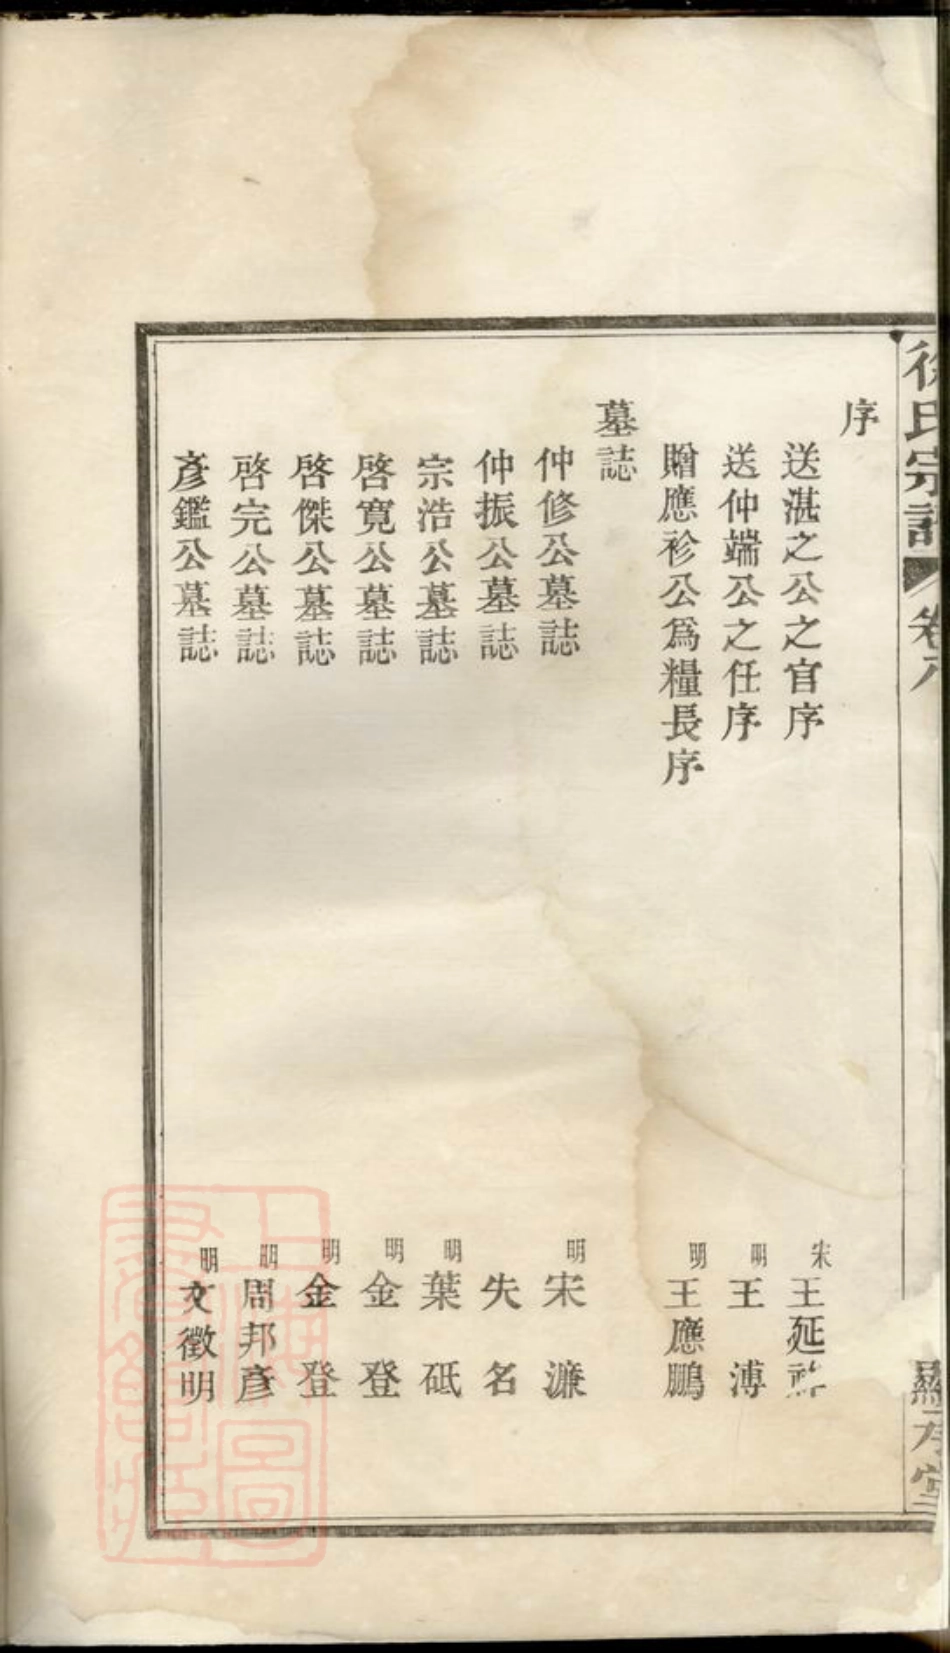 徐氏宗譜 卷
序
送湛之公之官序 宋 王延
送仲端公之任序 明 王溥
贈應衫公爲糧長序 明 王應鵬
墓誌
仲修公墓誌 明 宋濂
仲振公墓誌 失名
宗浩公墓誌 明 葉砥
啓寬公墓誌 明 金登
啓傑公墓誌 明 金登
啓完公墓誌 明 周邦彥
彥鑑公墓誌 明 文徵明
上海圖書館藏